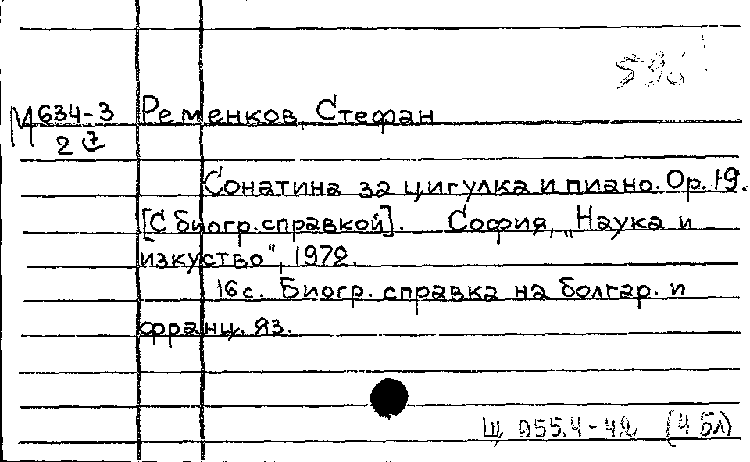 М 634-3 Ременков, Стефан
2
Сонатина за цигулка и пиано. Ор. 19.
[С биогр. справкой]. София, „Наука и
изкуство", 1972.
16 с. Биогр. справка на болгар. и
франц. яз.
Щ 955.4-42 (4 Бл)